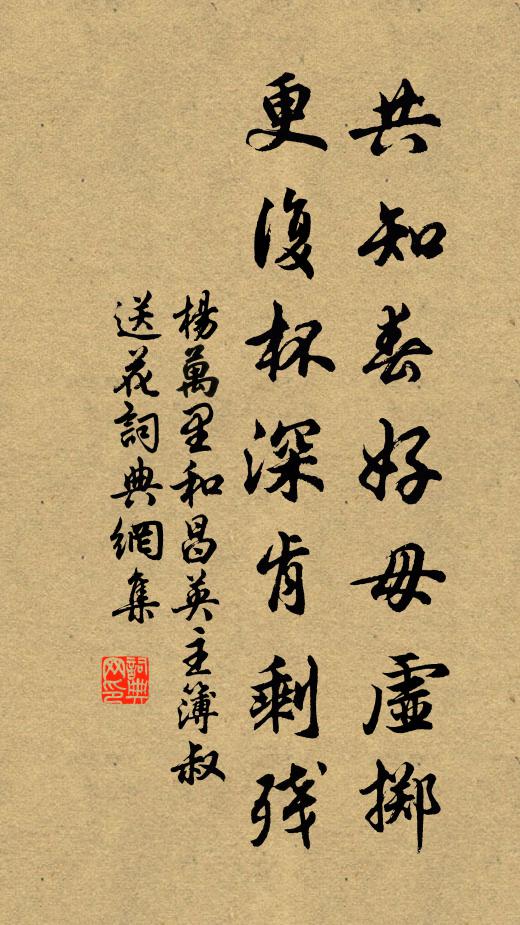 共知春好毋虛擲
更復杯深肯剩殘
楊萬里和昌英主簿叔
送花詞典網集
詞典网印